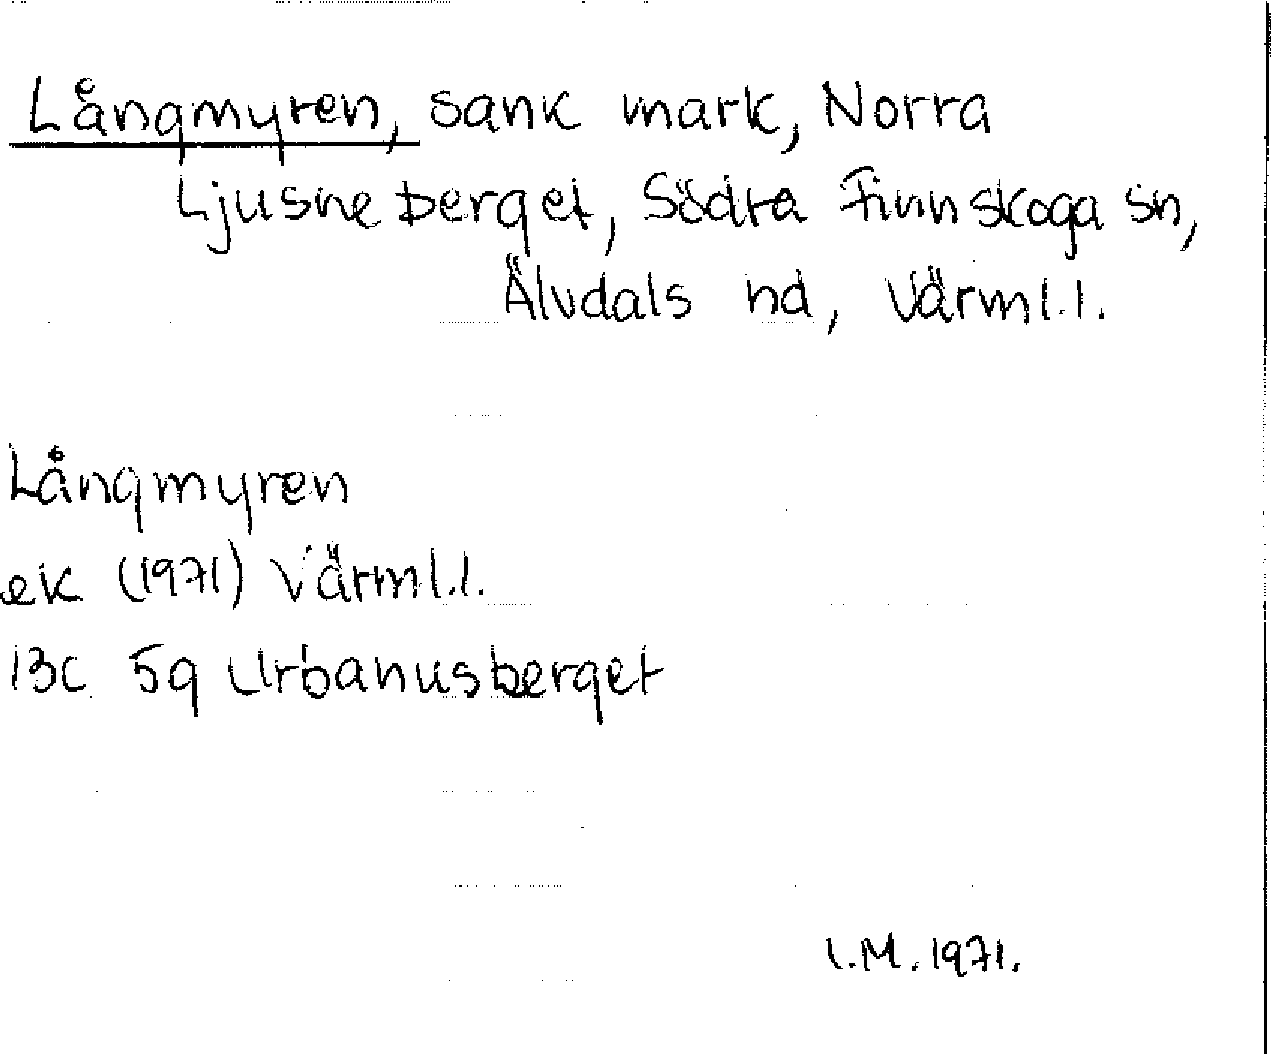 Långmyren, sank mark, Norra
Ljusneberget, Södra Finnskoga sn,
Älvdals hd, Värml.l.
Långmyren
ek (1971) Värml.l.
13C 5g Urbanusberget
I.M. 1971.